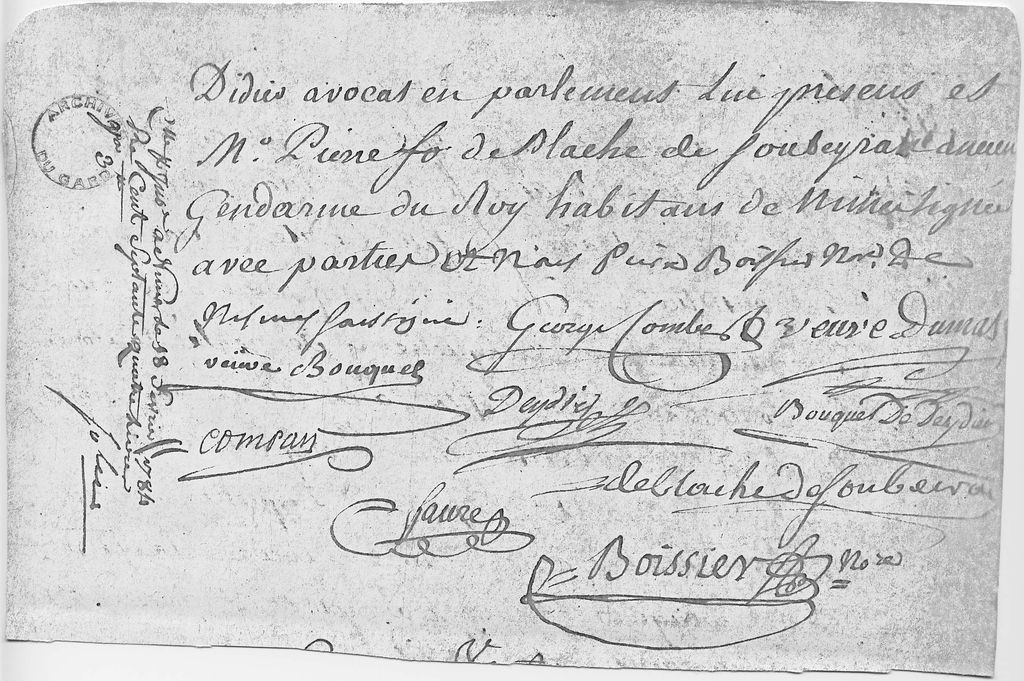 Didier avocat en parlement Lui present et
Mᵉ. Pierre fs de Blache de Soubeyran ancien
Gendarme du Roy habitans de Nimes signés
avec parties Et Nous Pierre Boissier Nore. De
Nismes soussigné. George Combe veuve Dumas
veuve Bouquet
Deydier
Bouquet De Deydier
comsan
deblache de Soubeiran
Faure
Boissier Nore
ARCHIV
DU GARD
a Nimes le 18 fevrier 1784
Rt Cent Soixante quatre livres